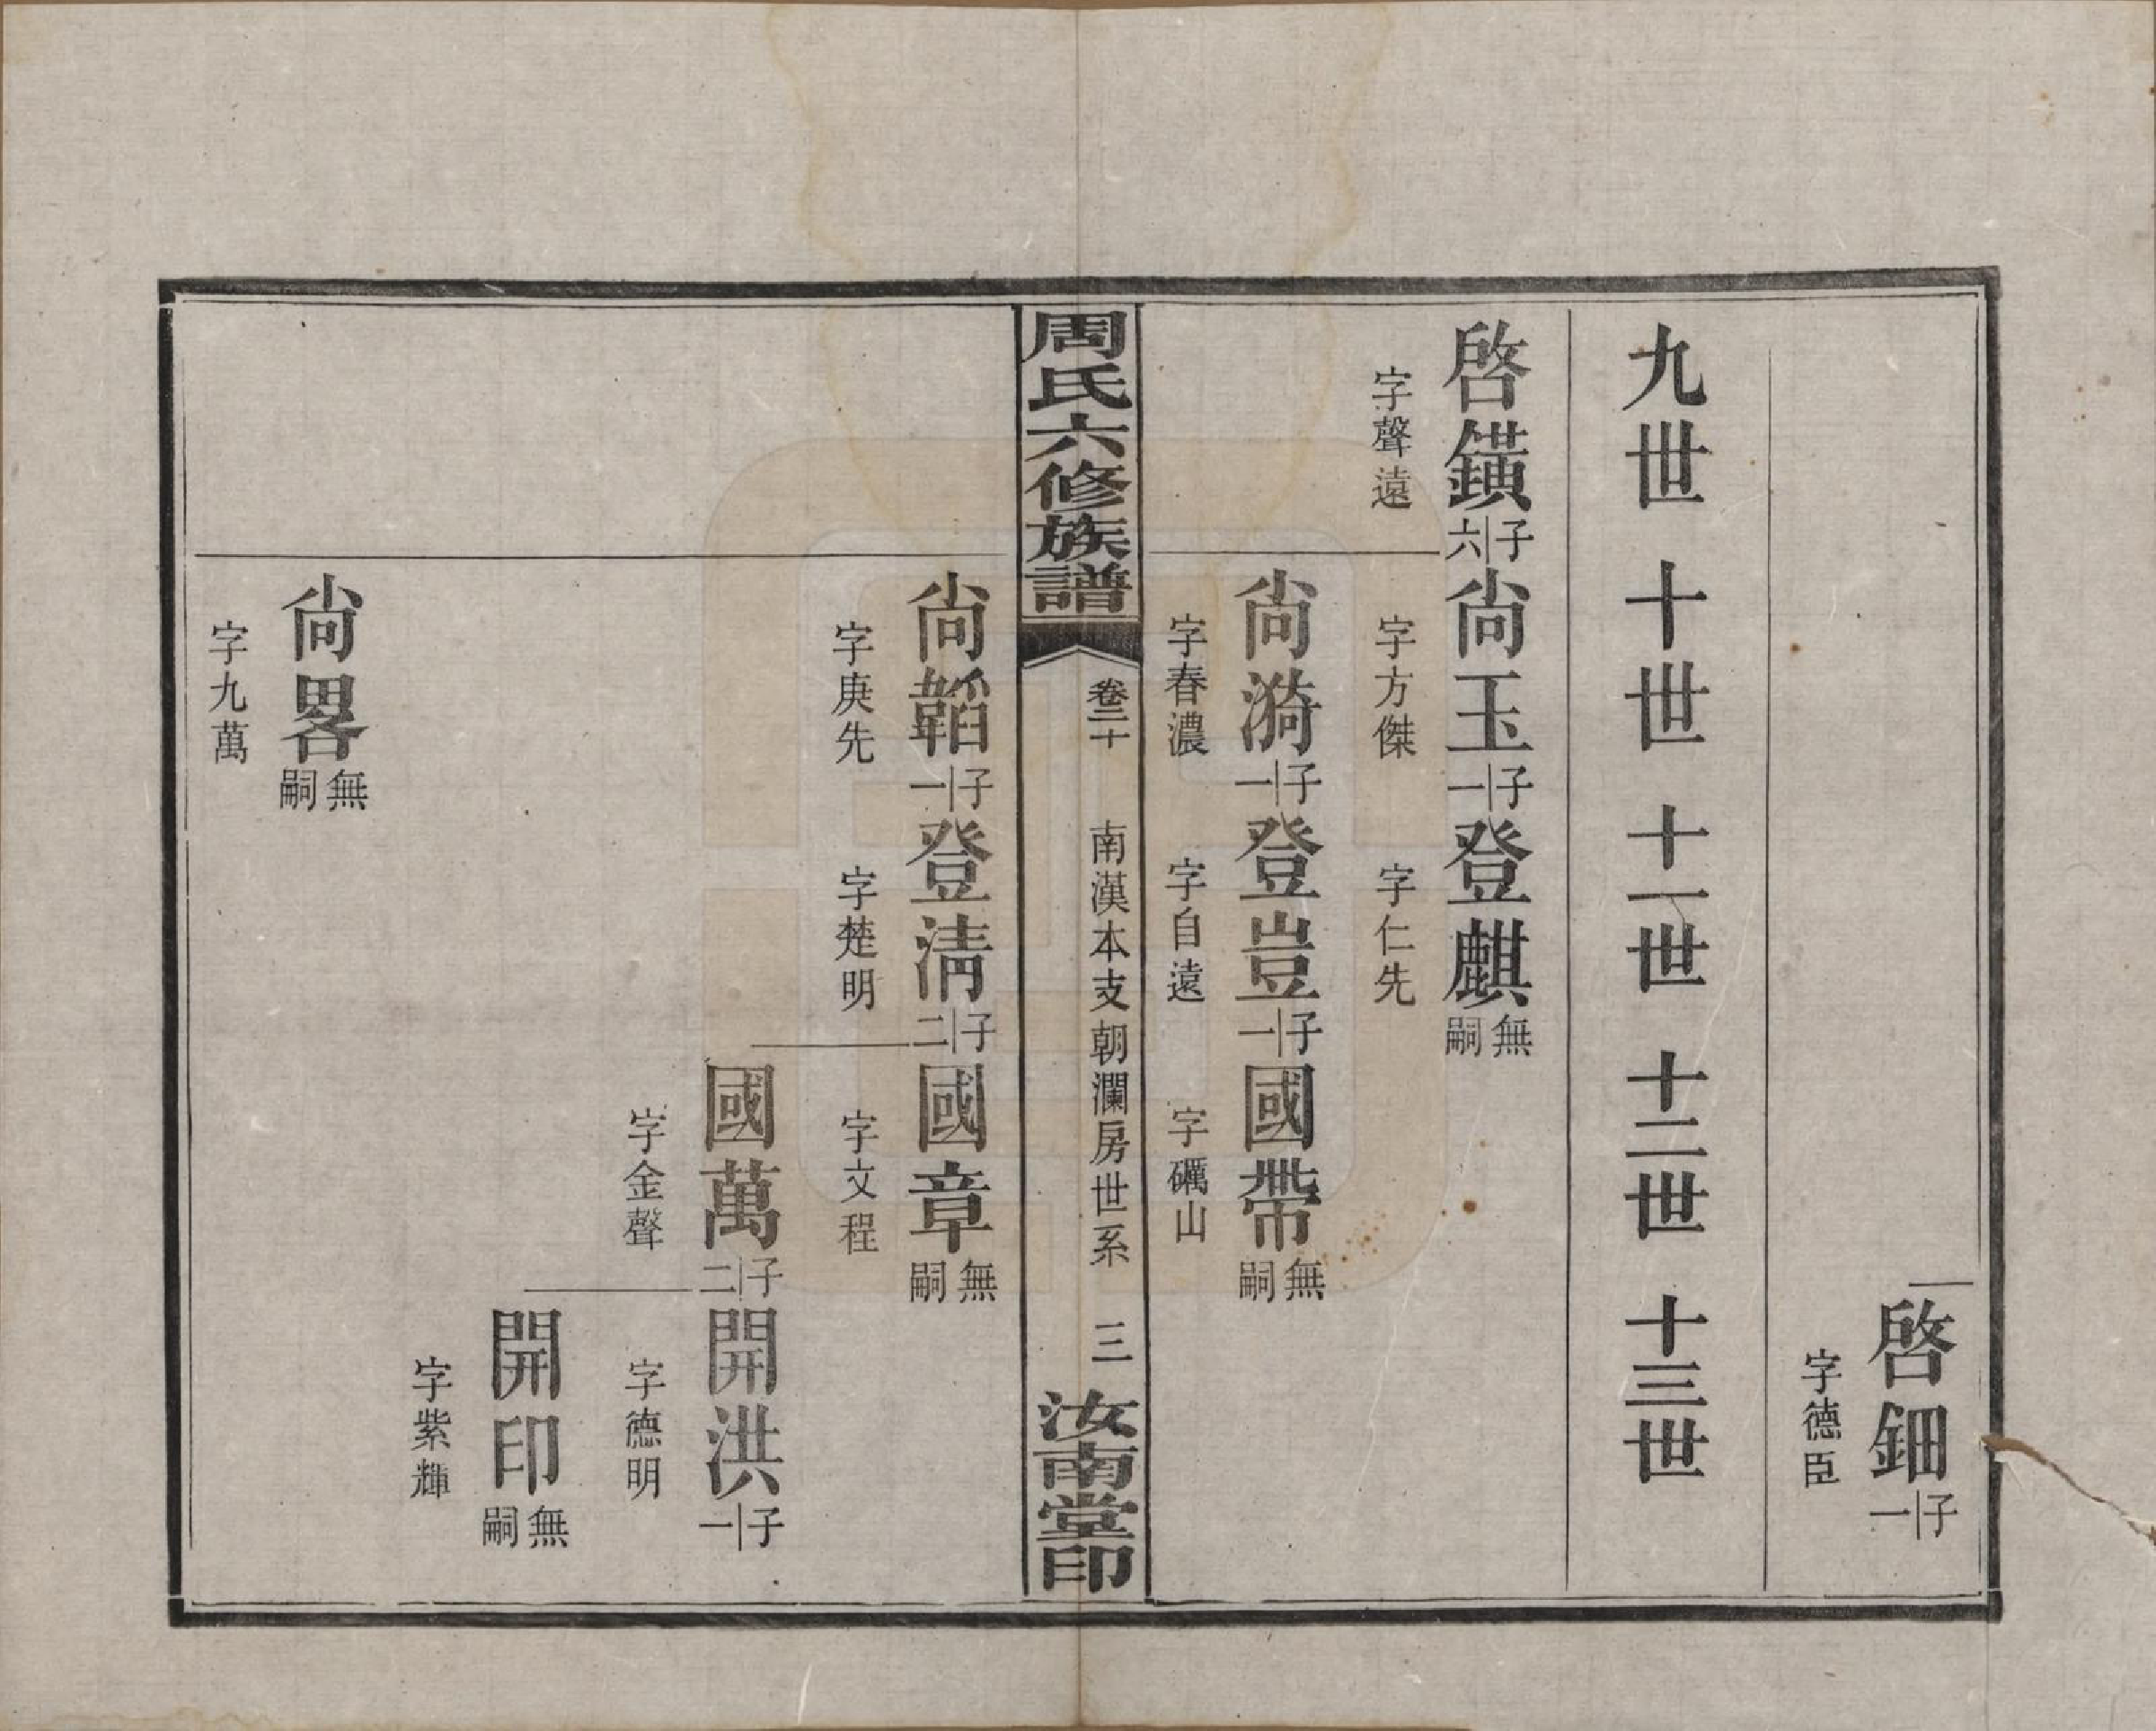 啓鈿 子一
字德臣
九世 十世 十一世 十二世 十三世
啓鐄 子六 尙玉 子一 登麒 無嗣
字聲遠 字方傑 字仁先
尙漪 子一 登豈 子一 國帶 無嗣
字春濃 字自遠 字礪山
周氏六修族譜 卷二十 南漢本支朝瀾房世系 三 汝南堂印
尙韜 子一 登淸 子二 國章 無嗣
字庚先 字楚明 字文程
國萬 子二 開洪 子一
字金聲 字德明
開印 無嗣
字紫輝
尙畧 無嗣
字九萬